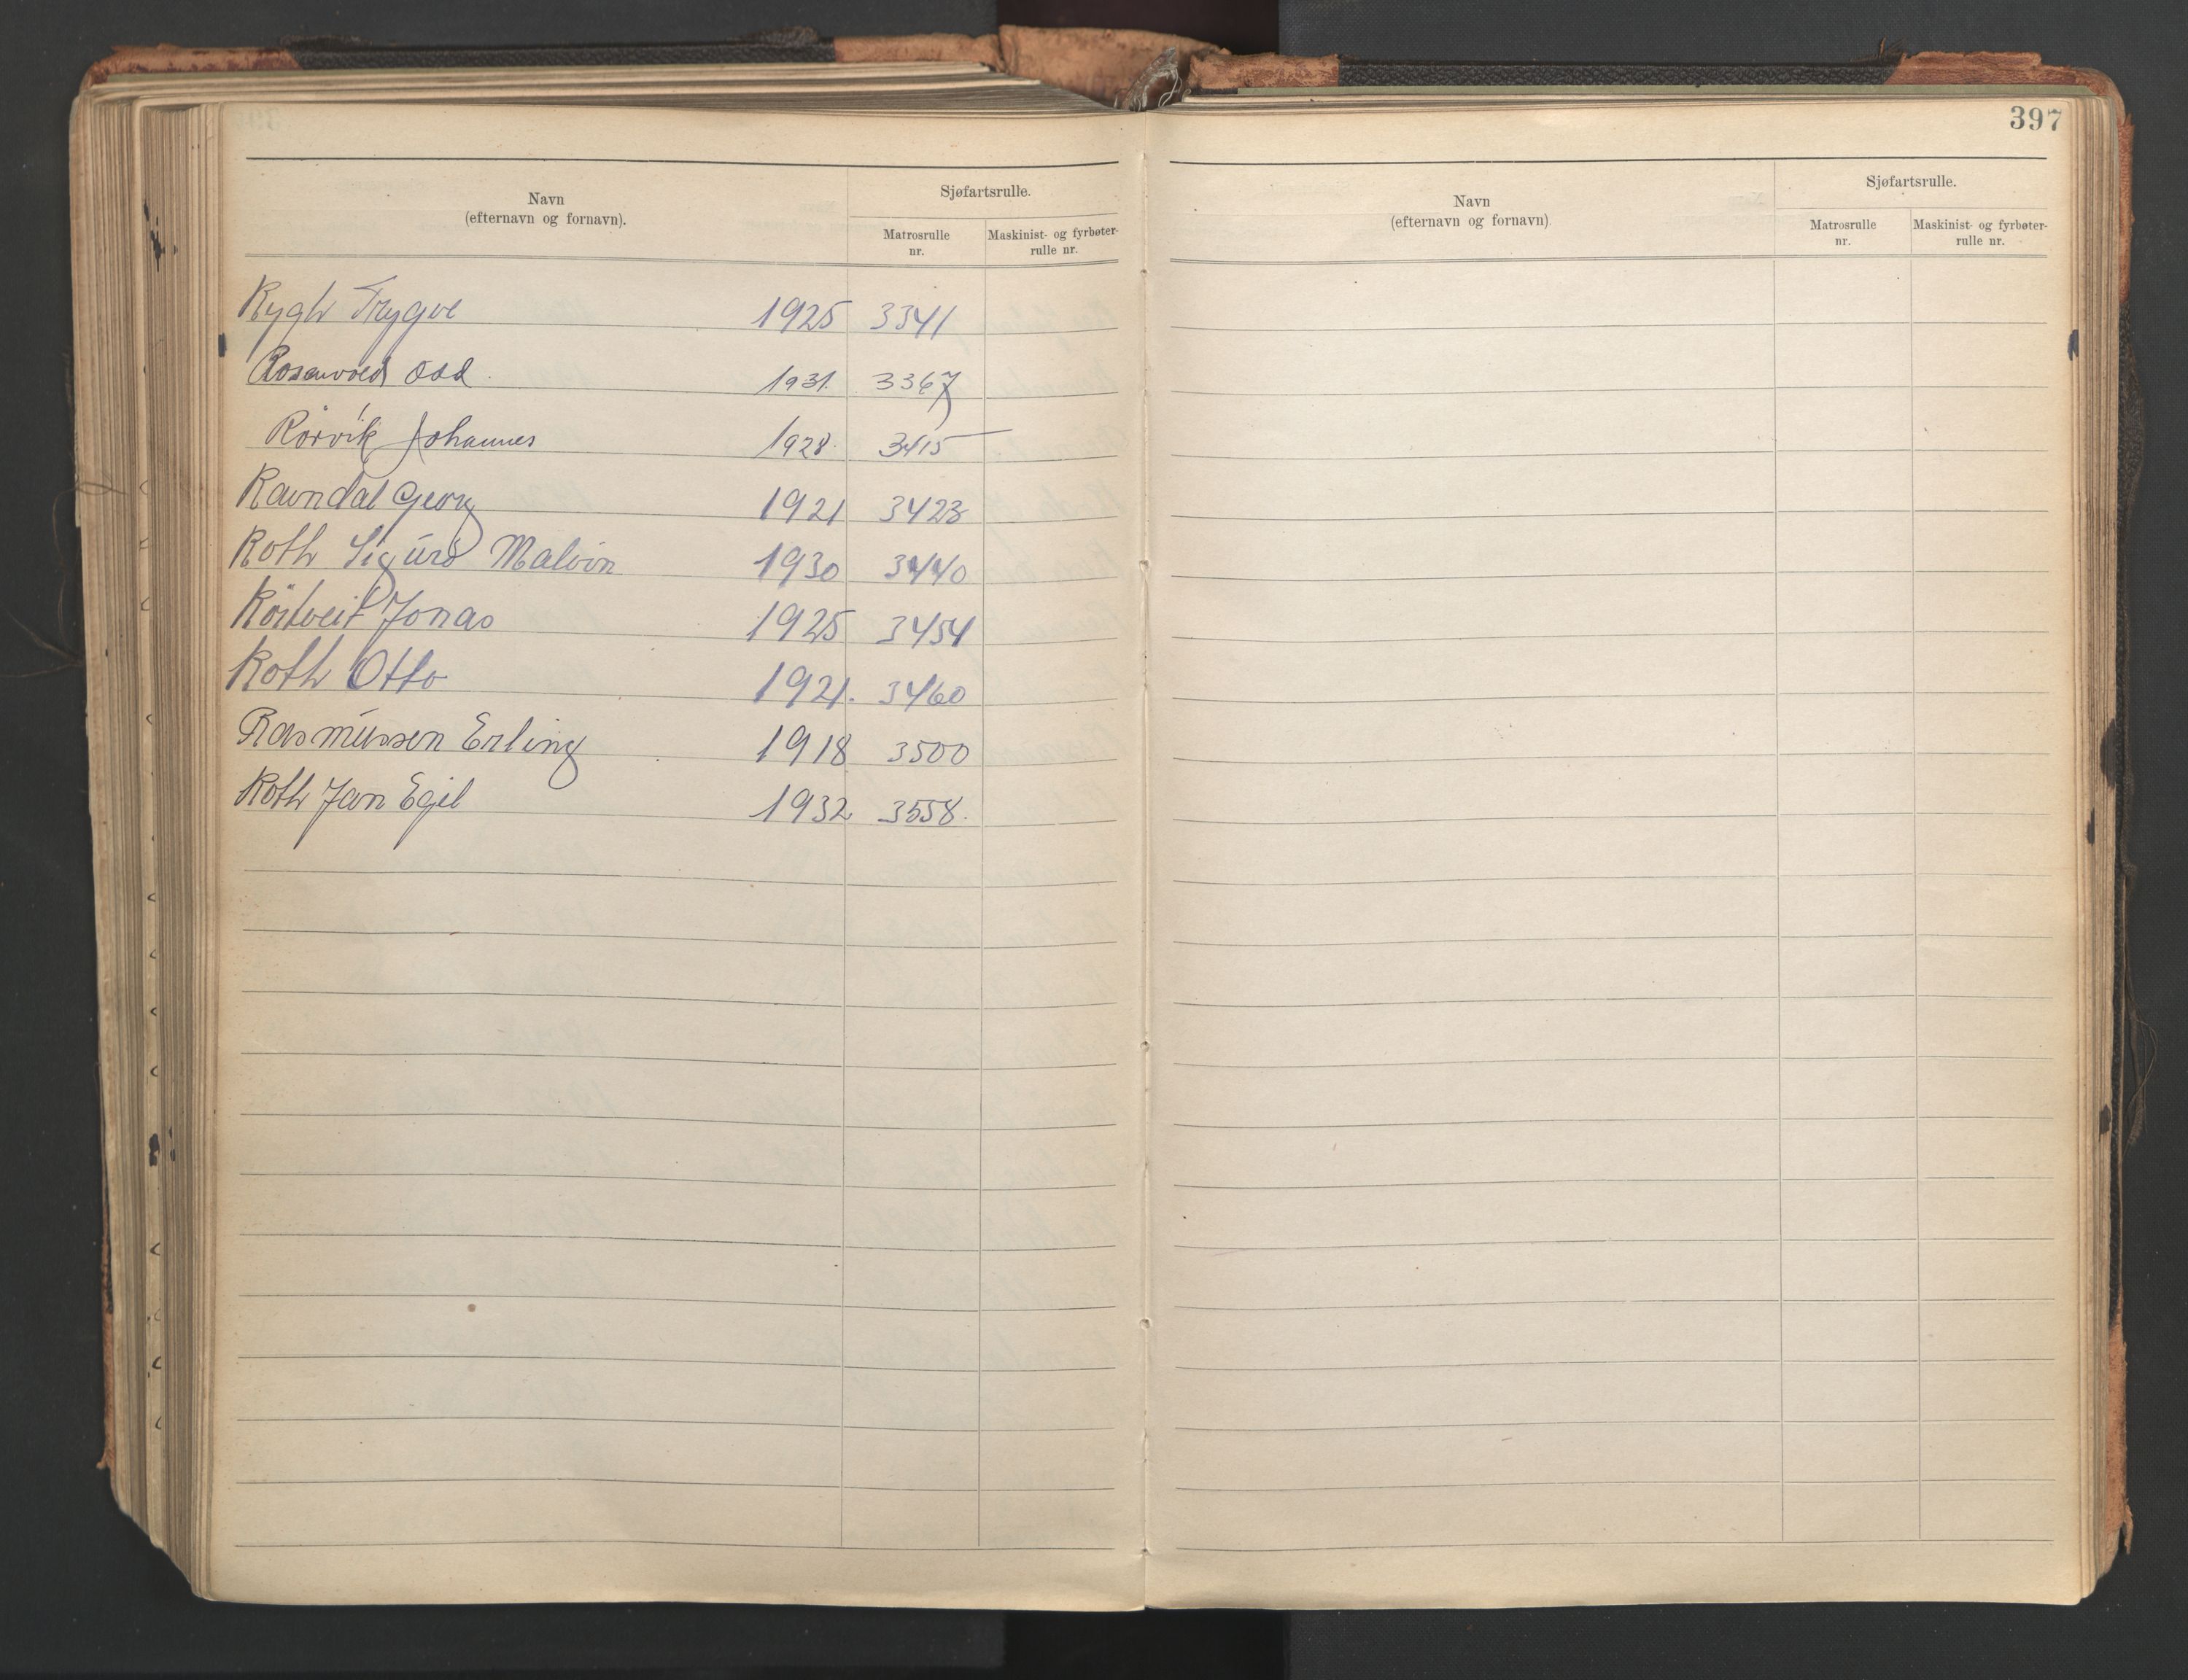 Navn
(efternavn og fornavn).
Sjøfartsrulle.
Matrosrulle nr.
Maskinist- og fyrbøter-rulle nr.
Rygh Trygve 1925 3341
Rosenvold Odd. 1931. 3367
Rörvik Johannes 1928. 3415
Ravndal Georg 1921 3423
Roth Sigurd Malvin 1930 3440
Röstveit Jonas 1925 3454
Roth Otto 1921. 3460
Rasmussen Erling 1918 3500
Roth Jan Egil 1932 3558.
397
Navn
(efternavn og fornavn).
Sjøfartsrulle.
Matrosrulle nr.
Maskinist- og fyrbøter-rulle nr.